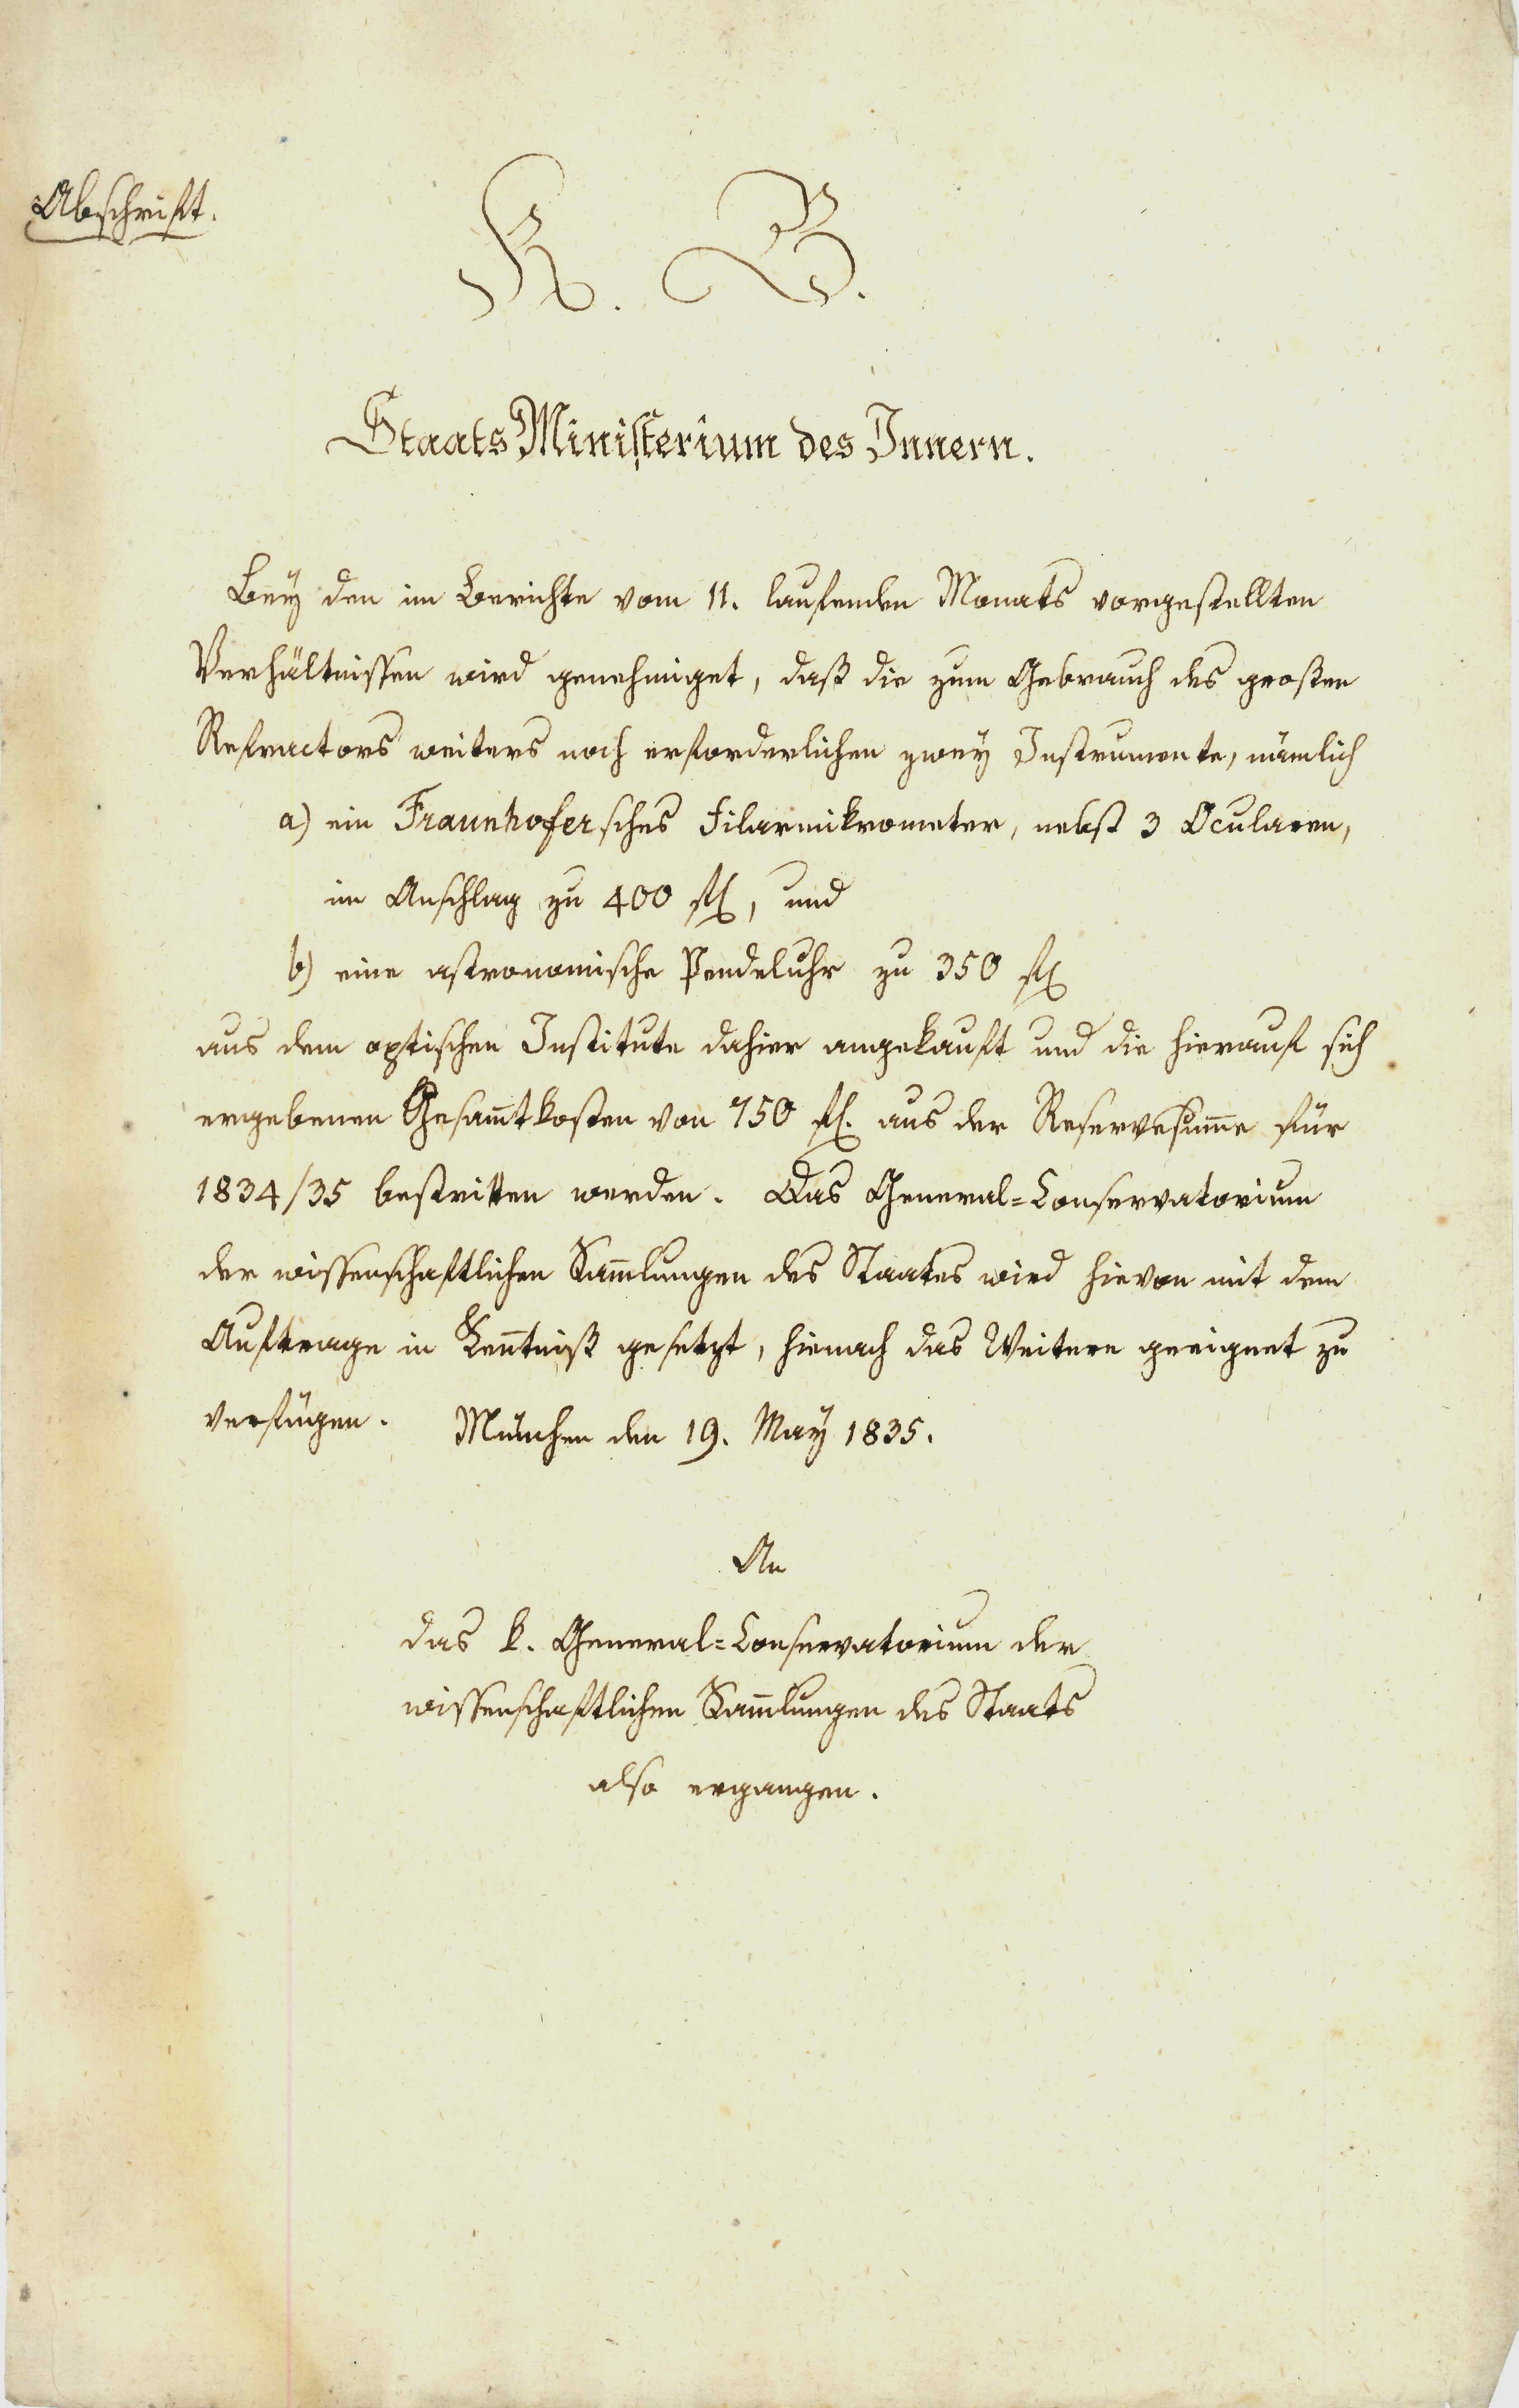 Abschrift.
K. B.
Staats Ministerium des Innern.
Bey den im Berichte vom 11. laufenden Monats vorgestellten
Verhältnissen wird genehmiget, daß die zum Gebrauch des großen
Refractors weiters noch erforderlichen zwey Instrumente, nämlich
a) ein Fraunhofersches Filarmikrometer, nebst 3 Ocularen,
im Anschlag zu 400 fl, und
b) eine astronomische Pendeluhr zu 350 fl
aus dem optischen Institute dahier angekauft und die hierauf sich
ergebenen Gesam̄tkosten von 750 fl. aus der Reservesum̄e für
1834/35 bestritten werden. Das General=Conservatorium
der wissenschaftlichen Sam̄lungen des Staates wird hievon mit dem
Auftrage in Ken̄tniß gesetzt, hienach das Weitere geeignet zu
verfügen. München den 19. May 1835.
An
das k. General=Conservatorium der
wissenschaftlichen Sam̄lungen des Staats
also ergangen.